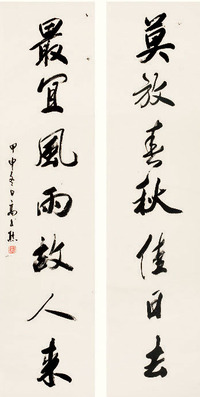 莫放春秋佳日去
最宜風雨故人来
甲申冬日高式熊